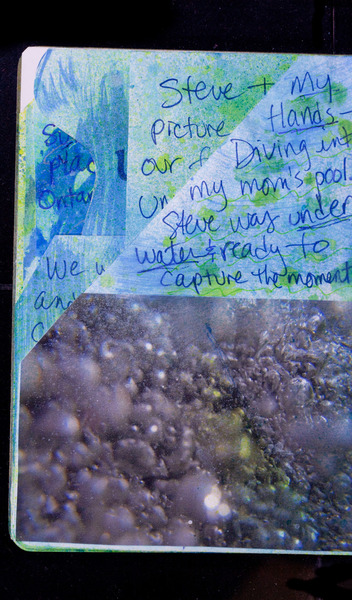 Steve + My
picture Hands-
our Diving int
my mom's pool.
Steve was under
water & ready to
capture the moment
We
and